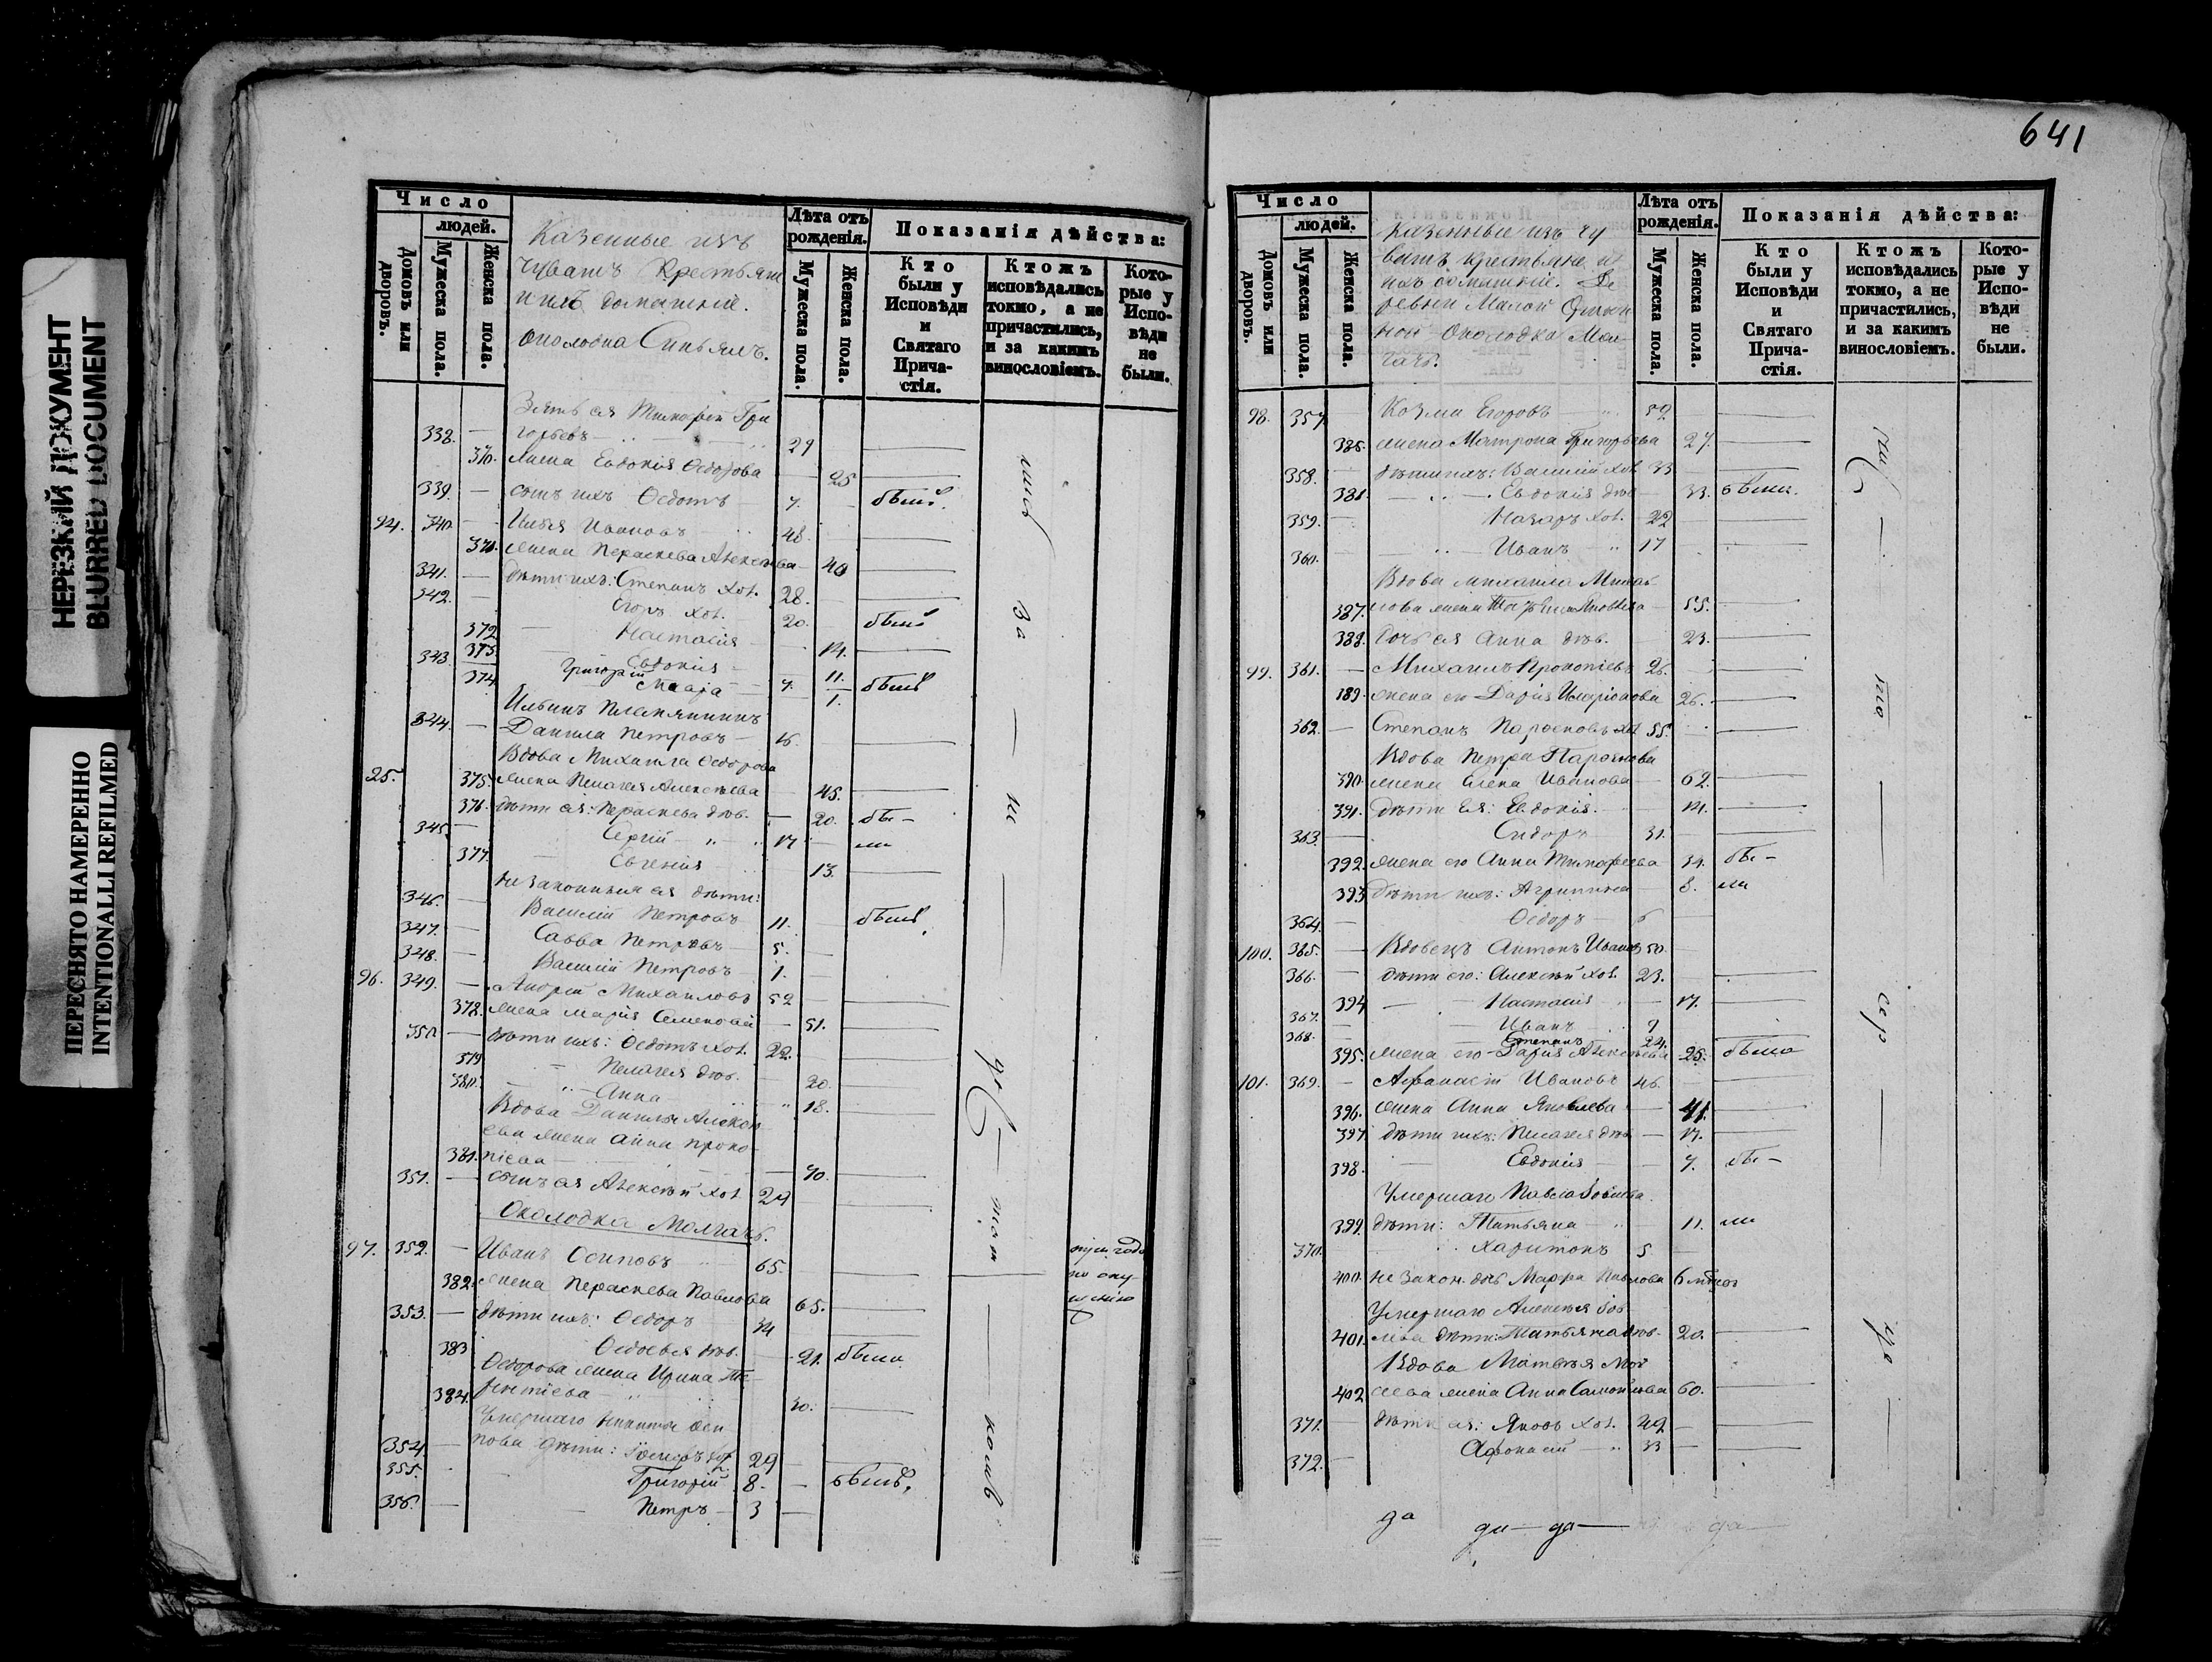 НЕРЕЗКИЙ ДОКУМЕНТ
BLURRED DOCUMENT
ПЕРЕСНЯТО НАМЕРЕННО
INTENTIONALLI REFILMED
Число
людей.
Домовъ или дворовъ.
Мужеска пола.
Женска пола.
Казенные изъ
чувашъ Крестьяне
и ихъ домашніе.
околодка Синьялъ.
Лѣта отъ рожденія.
Мужеска пола.
Женска пола.
Показанія дѣйства:
Кто были у Исповѣди и Святаго Причастія.
Ктожъ исповѣдались токмо, а не причастились, и за какимъ винословіемъ.
Которые у Исповѣди не были.
Зять ея Тимофей Гри
338. — горьевъ — 29
370. жена Евдокія Ѳедорова — 25
339. — сынъ ихъ Ѳедотъ 7. — былъ.
94. 340. — Илья Ивановъ 48.
371. жена Пераскева Алексѣева — 40
341. — дѣти ихъ: Степанъ хол. 28.
342. — Егоръ хол. 20. былъ
372 — Настасія 14.
373. Евдокія 11.
343. Григорій 7. былъ
374 Марѳа 1.
Ильинъ племянникъ
344. — Данила Петровъ — 16.
Вдова Михаила Ѳедорова
95. 375. жена Пелагея Алексѣева 45.
376. дѣти ея: Пераскева дѣв. — 20. бы-
345. — Сергій 17 — ли
377. — Евгенія 13.
Незаконныя ея дѣти:
346. — Василій Петровъ 11. былъ.
347. — Савва Петровъ — 5.
348. — Василій Петровъ — 1.
96. 349. — Андрей Михаиловъ 52
378. жена Марія Семенова — 51.
350. — дѣти ихъ: Ѳедотъ хол. 22.
379 — Пелагея дѣв. — 20.
380. — Анна 18.
Вдова Данилы Алексѣ
ева жена Анна Проко-
381. піева — 70.
351. — сынъ ея Алексѣй хол. 29
Околодка Молгачь.
97. 352. — Иванъ Осиповъ 65.
382. жена Пераскева Павлова 65.
353. — дѣти ихъ: Ѳедоръ 34
383 Ѳедосья дѣв. — 21. была
Ѳедорова жена Ирина Те-
384. рентіева — 30.
Умершаго Никиты Оси
354. — пова дѣти: 29
355. Григорій 8. — былъ,
356. — Петръ — 3 —
три года
по опу-
щенію
641
Число
людей.
Домовъ или дворовъ.
Мужеска пола.
Женска пола.
Казенные изъ чу
вашъ крестьяне и
ихъ домашніе. Де
ревни Малой
ной Околодка Мол-
гачь.
Лѣта отъ рожденія.
Мужеска пола.
Женска пола.
Показанія дѣйства:
Кто были у Исповѣди и Святаго Причастія.
Ктожъ исповѣдались токмо, а не причастились, и за какимъ винословіемъ.
Которые у Исповѣди не были.
98. 357. Козма Егоровъ 59.
385. жена Матрона Григорьева 27.
358. — дѣти ихъ: Василій хол. 33
386. Евдокія дѣв — 33. была.
359. — Назаръ хол. 22
360. — Иванъ 17
Вдова Михаила Михаи-
387. лова жена Яковлева — 55.
388. дочь ея Анна дѣв. 23.
99. 361. — Михаилъ Прокопіевъ 26.
389. жена его Дарія Иларіонова 26.
362. — Степанъ хол 55.
Вдова Петра
390 жена Елена Иванова — 62.
391. дѣти ея: Евдокія. 14.
363. — Сидоръ 31. —
392. жена его Анна Тимофеева 31. бы-
393 дѣти ихъ: Агрипина 8. ли
364. — Ѳедоръ — 6
100. 365. — Вдовецъ Антонъ Ивановъ 50.
366. — дѣти его: Алексѣй хол. 23.
394 — Настасія — 17.
367. — Иванъ 9
368. — Степанъ 24.
395. жена его Дарія Алексѣева 25. была
101. 369. — Афанасій Ивановъ 46.
396. жена Анна Яковлева — 41.
397. дѣти ихъ: Пелагея дѣв — 17.
398. — Евдокія — 7. бы-
Умершаго Павла
399. дѣти: Татьяна 11. ли
370. Харитонъ 5. —
400. незакон. дочь Марфа Павлова 6 мѣсяц
Умершаго Алексѣя
401. дѣти: Татьяна дѣв. 20.
Вдова Матвѣя Мои
402 сеева жена Анна Самойлова 60.
371. дѣти ея: Яковъ хол. 42
372. — Афонасій 33 —
да да — да — да